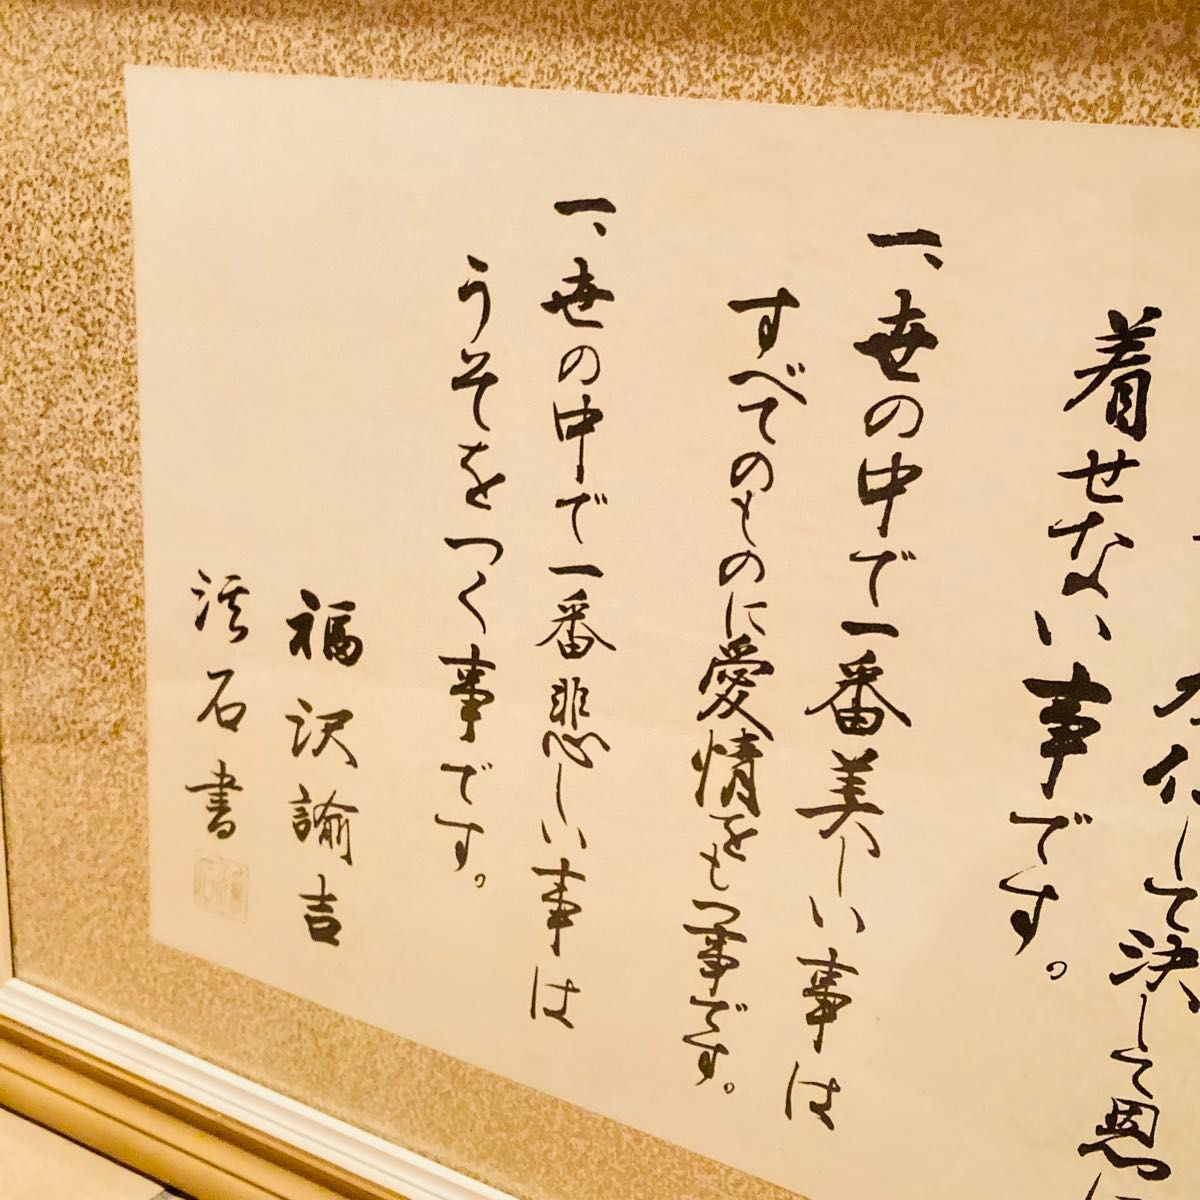 仕して決して恩に
着せない事です。
一、世の中で一番美しい事は
すべてのものに愛情をもつ事です。
一、世の中で一番悲しい事は
うそをつく事です。
福沢諭吉
石書